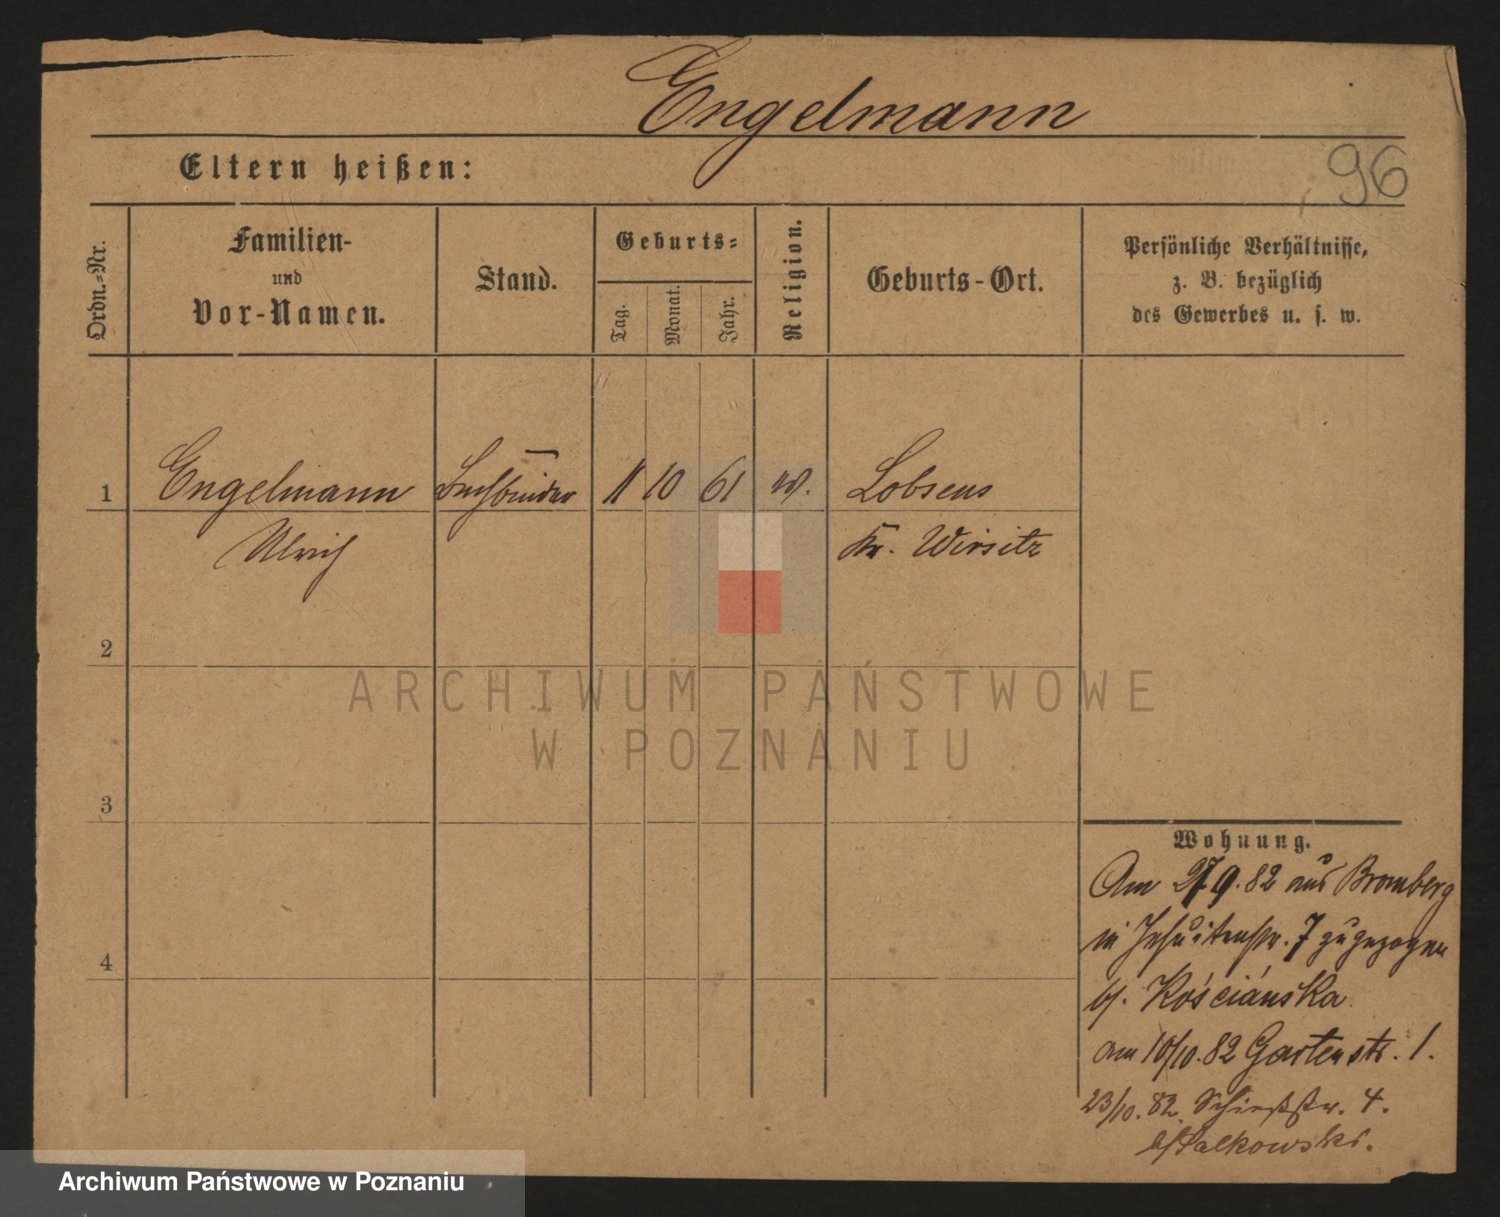 Engelmann
96
Eltern heißen:
Ordn.-Nr.
Familien-
und
Vor-Namen.
Stand.
Geburts-
Tag.
Monat.
Jahr.
Religion.
Geburts-Ort.
Persönliche Verhältnisse,
z. B. bezüglich
des Gewerbes u. s. w.
1
Engelmann
Ulrich
Buchbinder
11
10
61
Lobsens
Kr. Wirsitz
2
3
4
Wohnung.
Am 27 9. 82 aus Bromberg
in Jesuitenstr. 7 zugezogen
b/. Kościańska
am 10/10. 82 Gartenstr. 1.
23/10. 82. Schießstr. 4.
ARCHIWUM PAŃSTWOWE
W POZNANIU
Archiwum Państwowe w Poznaniu